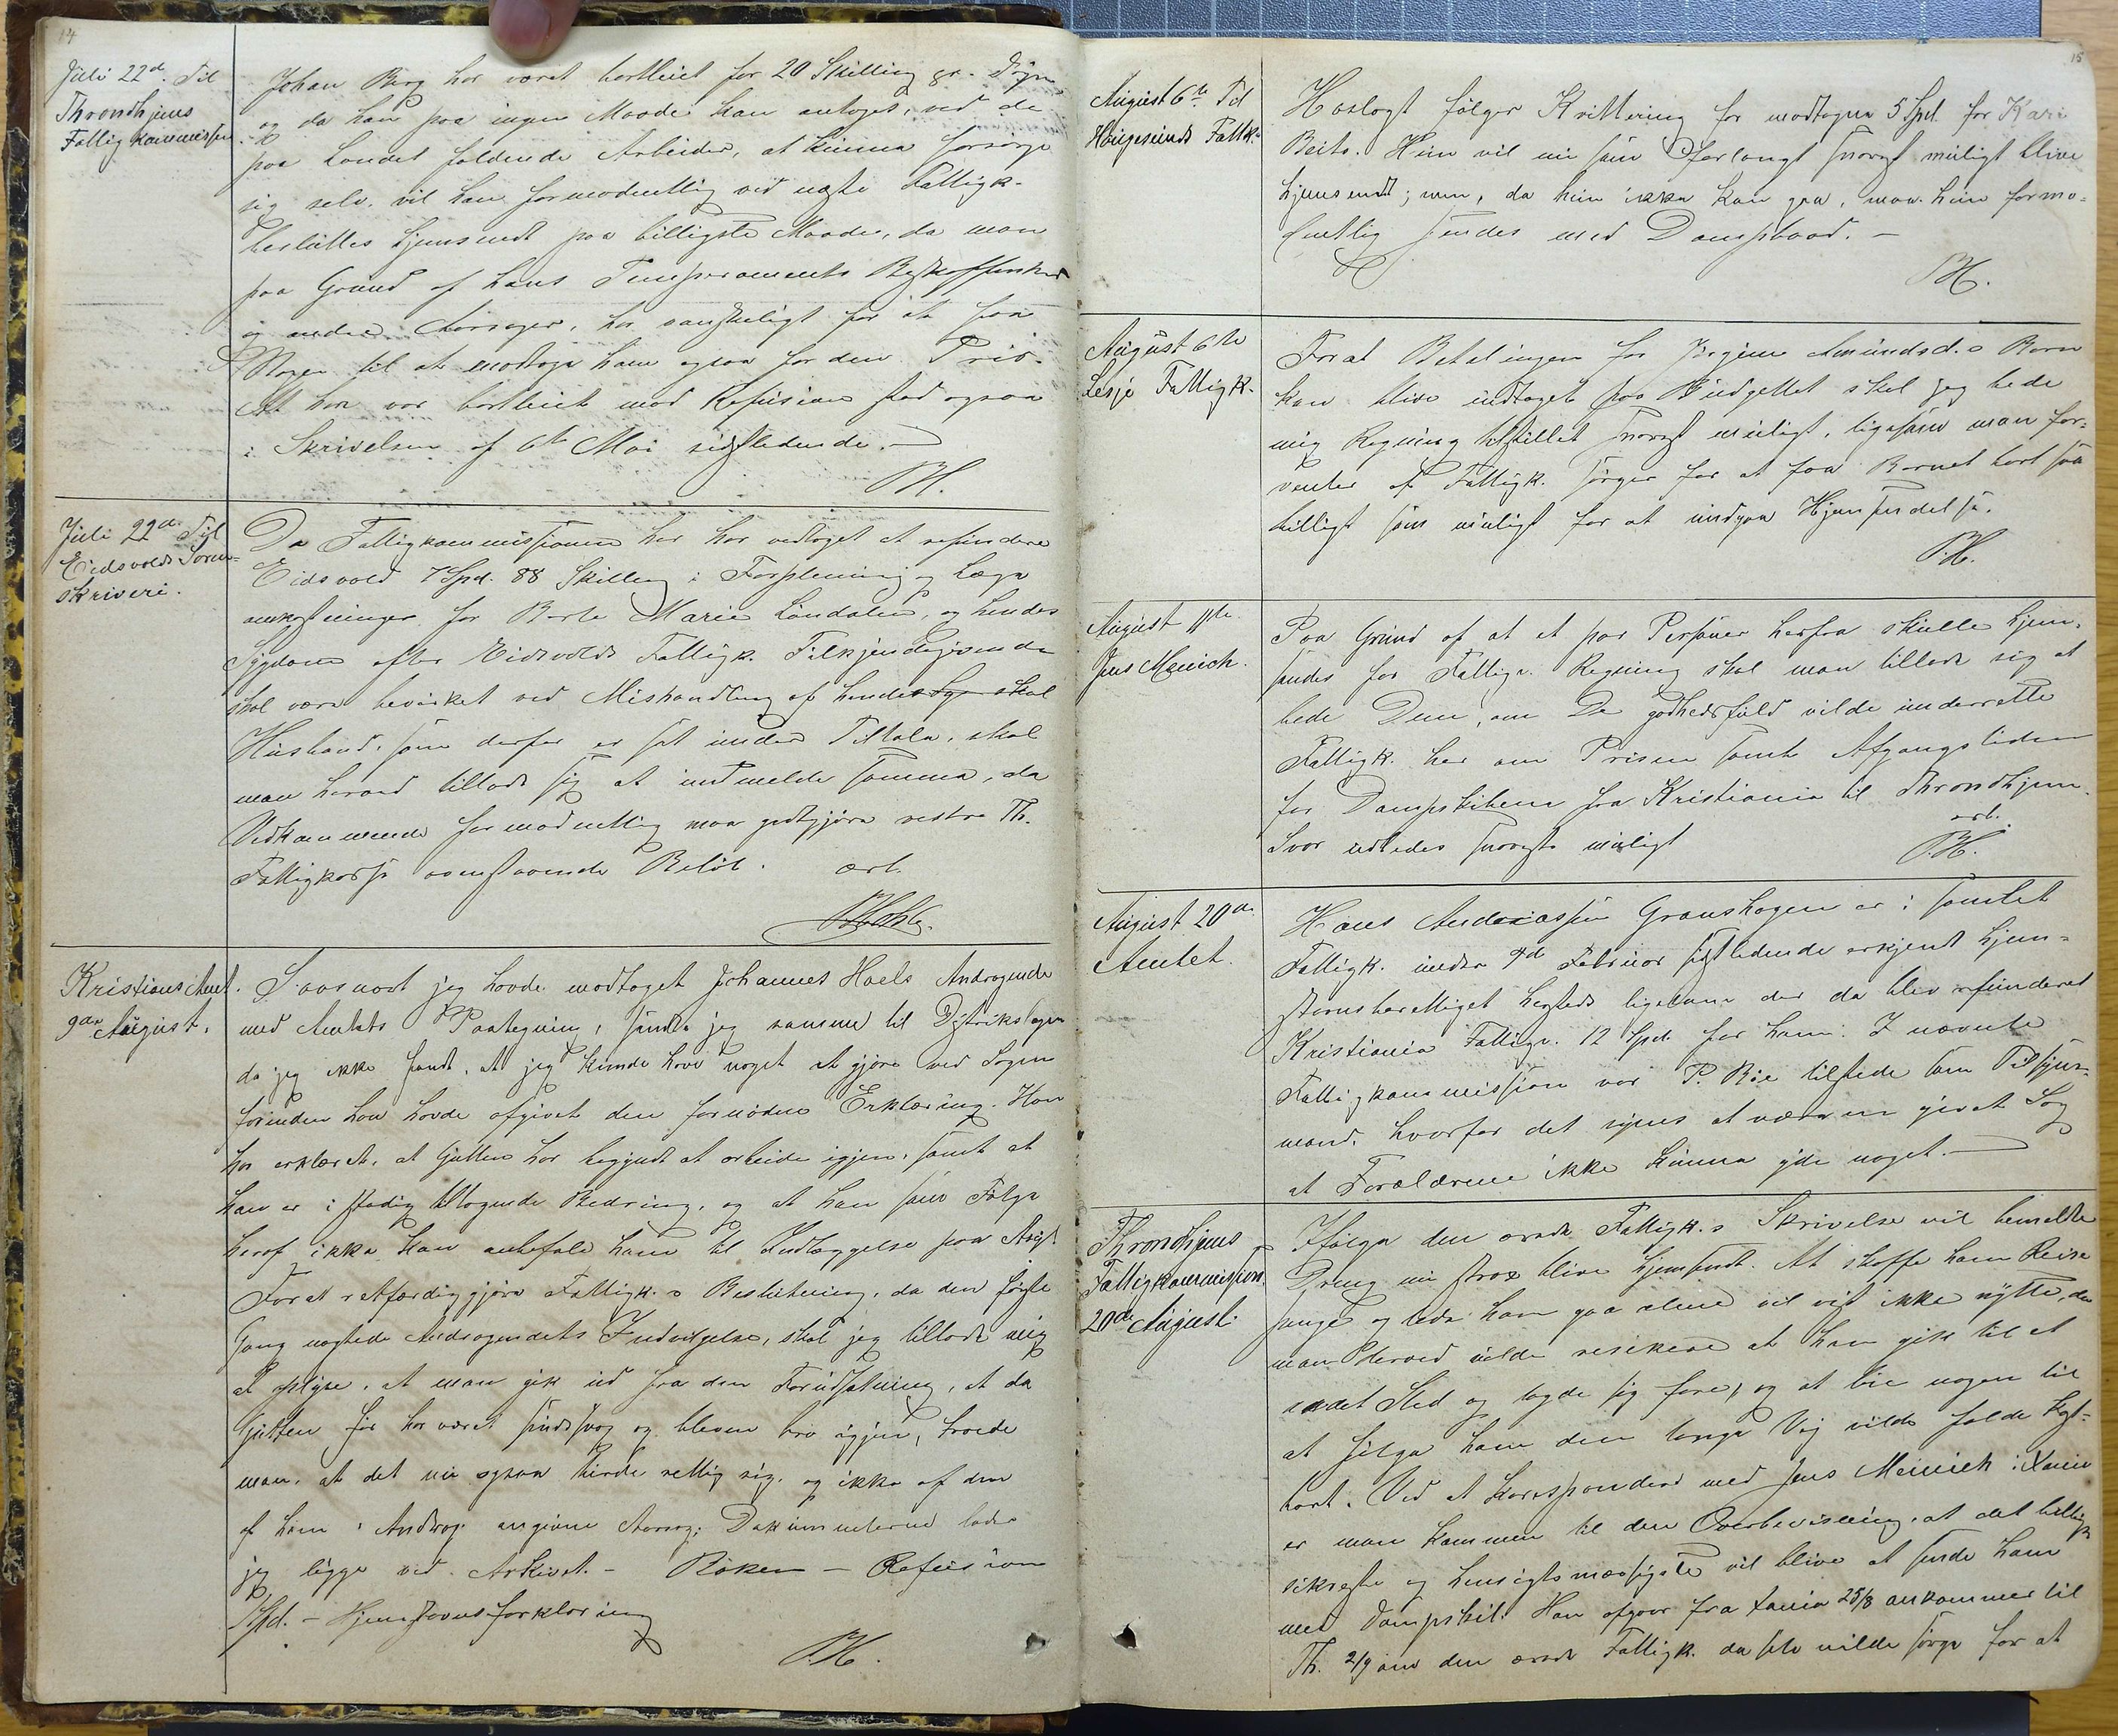 14
Juli 22d. Til
Throndhjems
Fattigkommission
Johan Berg har været bortleiet for 20 Skilling pr. Døgn
og da han paa ingen Maade kan antages, ved de
paa Landet faldende Arbeider, at kunne forsørge
sig selv, vil han formodentlig ved næste Fattigk.
besluttes hjemsendt paa billigste Maade, da man
paa Grund af hans Temperaments Beskaffenhed
og andre Aarsager, har vanskeligt for at faa
Nogen til at modtage ham ogsaa for den Pris.
At han var bortleiet mod Refusion stod ogsaa
i Skrivelsen af 6te Mai sidstledende.
P.H.
Juli 22de Til
Eidsvolds Soren-
skriveri.
Da Fattigkommissionen her har vedtaget at refundere
Eidsvold 7 Spd. 88 Skilling i Forpleining og Læge
omkostninger for Berte Marie Lundalen, og hendes
Sygdom efter Eidsvolds Fattigk. Tilkjendegivende
skal være bevirket ved Mishandling af hendes Syn skal
Husband, som derfor er sat under Tiltale, skal
man herved tillade sig at indmelde samme, da
Vedkommende formodentlig maa godtgjøre vestre Th.
Fattigkasse ovenstaaende Beløb. ærb.
Kristians Amt.
9de August.
Saasnart jeg havde modtaget Johannes Haels Andragende
med Amtets Paategning, sendte jeg samme til Distriktslægen
da jeg ikke fandt, at jeg kunde have noget at gjøre ved Sagen
førinden han havde afgivet den fornødne Erklæring. Han
har erklæret, at Gutten har begyndt at arbeide igjen, samt at
han er i stadig tiltagende Bedring, og at han som Følge
heraf ikke kan anbefale ham til Indlæggelse paa Asyl.
For at retfærdiggjøre Fattigk.s Beslutning, da den første
Gang nægtede Andragendets Indvilgelse, skal jeg tillade mig
at oplyse, at man gik ud fra den Forudsætning, at da
Gutten før har været sindssvag og bleven bra igjen, troede
man, at det nu ogsaa turde rettig sig, og ikke af den
af ham i Androg. angivne Aarsag. Dokumenterne lader
jeg ligge ved Arkivet. – Røken – Refusion
Spd. – Hjemstavnsforklaring
P.H.
15
August 6te Til
Haugesunds Fattk.
Hoslagt følger Kvittering for modtagne 5 Spd. for Kari
Beito. Hun vil nu som forlangt snarest muligt blive
hjemsendt; men, da hun ikke kan gaa, maa hun formo-
dentlig sendes med Dampbaad. –
P.H.
August 6te
Lesje Fattigk.
Forat Betalingen for Jørgine Amundsd.s Barn
kan blive indtaget paa Budgettet skal jeg bede
mig Regning tilstillet snarest muligt, ligesom man for-
venter at Fattigk. sørger for at faa Barnet bort saa
billigt som muligt for at undgaa Hjemsendelse.
P.H.
August 11te
Jens Meinich.
Paa Grund af at et par Personer herfra skulle hjem-
sendes for Fattigv. Regning skal man tillade sig at
bede Dem, om De godhedsfuld vilde underrette
Fattigk. her om Prisen samt Afgangstiden
for Dampskibene fra Kristiania til Throndhjem.
Svar udbedes snarest muligt
ærb.
P.H.
August 20de
Amtet.
Hans Andreassen Granshagen er i samlet
Fattigk. under 9d Februar sidstledende erkjendt hjem-
stavnsberettiget hersteds ligesom der da blev refunderet
Kristiania Fattigv. 12 Spd. for ham. I nævnte
Fattigkommission var P. Bøe tilstede som Tilsyns-
mand, hvorfor det synes at være en given Sag
at Forældrene ikke kunne yde noget.
Throndhjems
Fattigkommission
20de August.
Ifølge den ærede Fattigk.s Skrivelse vil bemeldte
Dreng nu strax blive hjemsendt. At skaffe ham Reise
penge og lade ham gaa alene vil vist ikke nytte, da
man derved vilde risikere at han gik til et
andet Sted og lagde sig der, og at leie nogen til
at følge ham den lange Vej vilde falde kost-
bart. Ved at korrespondere med Jens Meinich i Xania
er man kommen til den Overbevisning, at det billigste
sikreste og hensigtsmæssigste vil blive at sende ham
med Dampskib. Han afgaar fra Xania 25/8 ankommer til
Th. 2/9 om den ærede Fattigk. da selv vilde sørge for at